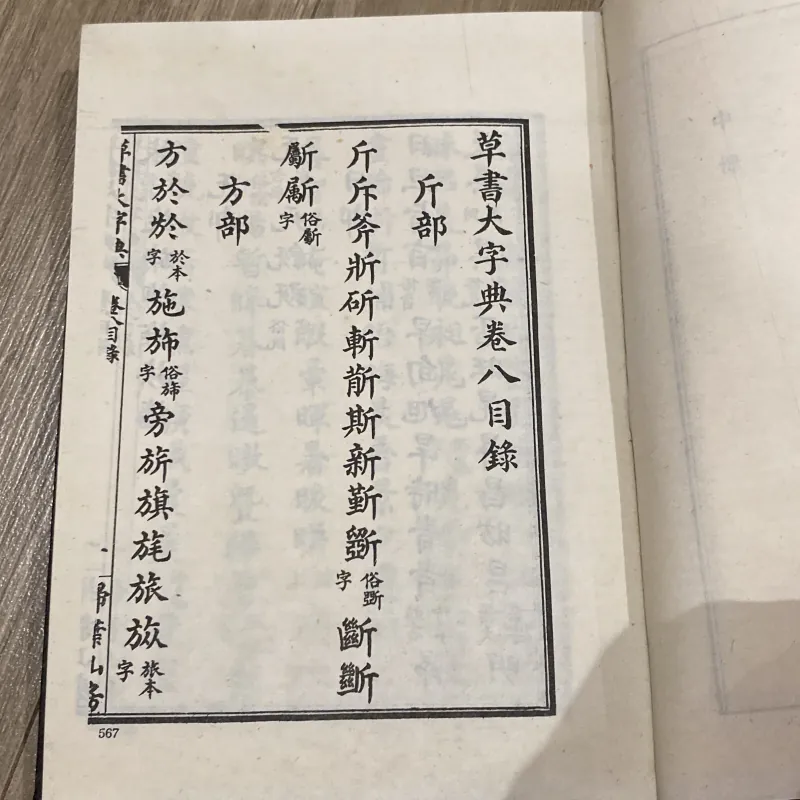 草書大字典卷八目錄
斤部
斤斥斧斨斫斬斮斯新斳斵俗斲字斷斷
斸斸俗斸字
方部
方於扵於本字施斾俗旆字旁旂旗旄旅㫊旅本字
草書大字典 卷八目錄 一 掃葉山房
567